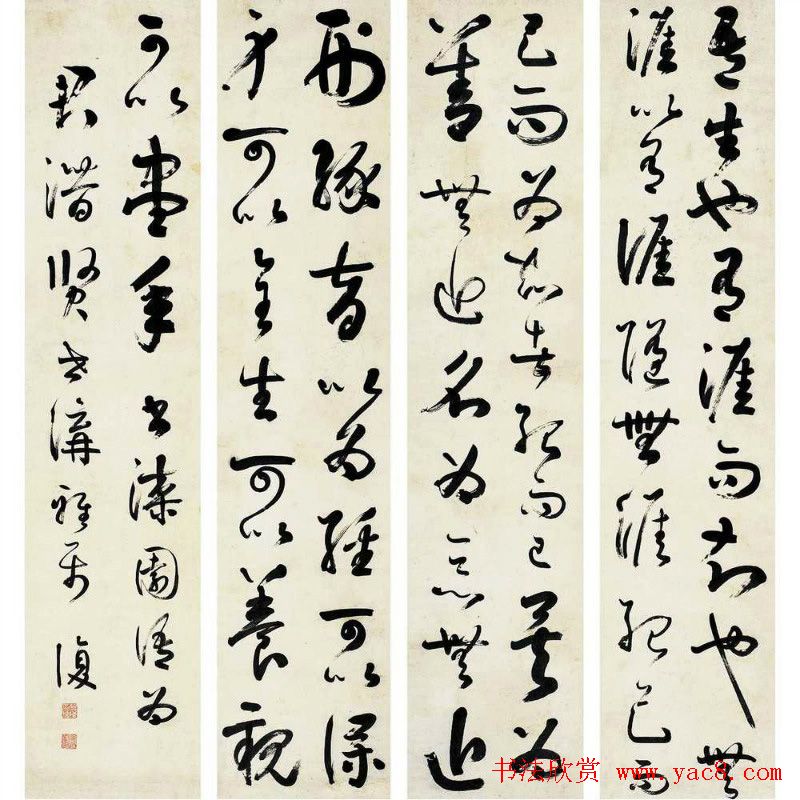 吾生也有涯而知也無
涯以有涯隨無涯殆已而
已而為知者殆而已矣為
善無近名為惡無近
刑緣督以為經可以保
身可以全生可以養親
可以盡年書漆園語為
潛賢世講雅属 復
书法欣赏 www.yac8.com